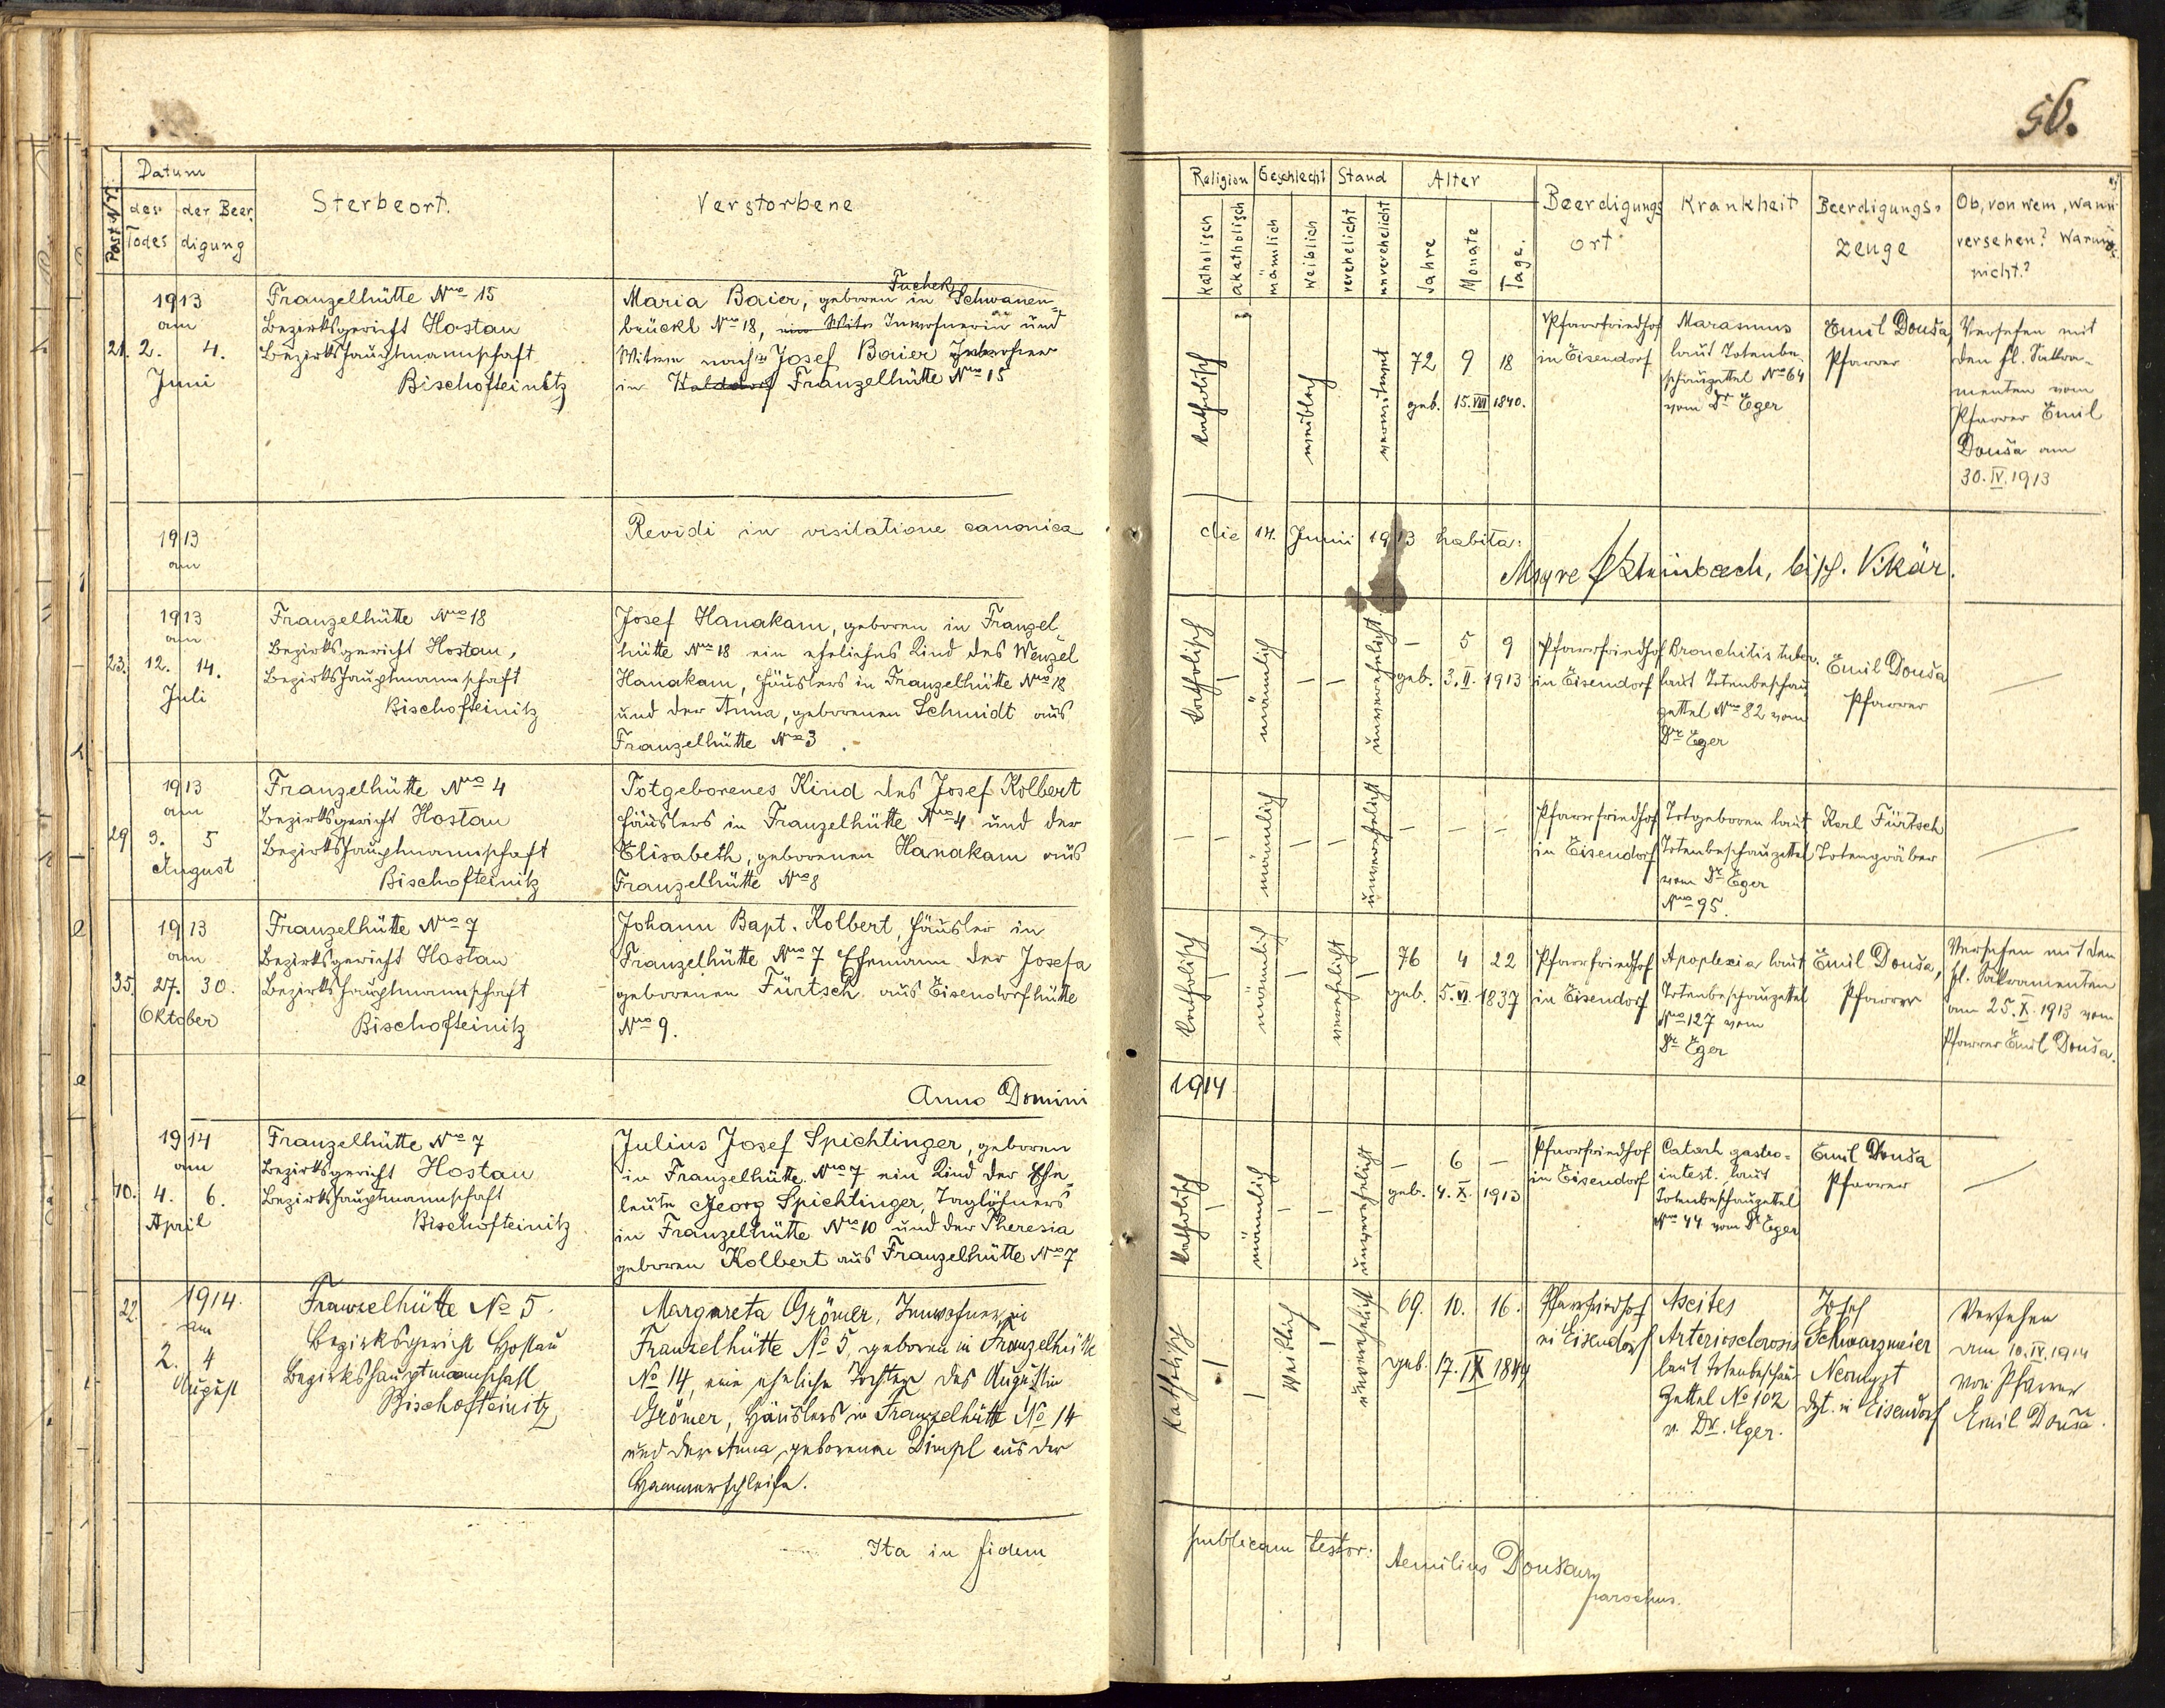 56.
Post-Nr.
Datum
des Todes
der Beer digung
Sterbeort.
Verstorbene
Religion
katholisch
akatholisch
Geschlecht
männlich
weiblich
Stand
verehelicht
unverehelicht
Alter
Jahre
Monate
Tage.
Beerdigungs
ort
Krankheit
Beerdigungs-
zeuge
Ob, von wem, wann
versehen? Warum
nicht?
1913
am
21. 2. 4.
Juni
Franzelhütte Nro 15
Bezirksgericht Hostau
Bezirkshauptmannschaft
Bischofteinitz
Tucheks
Maria Baier, geboren in Schwanen-
brückl Nro 18, Inwohnerin und
Witwe nach Josef Baier Inwohner
in Franzelhütte Nro 15
katholisch
weiblich
verwitwet
72 9 18
geb. 15. VIII 1840.
Pfarrfriedhof
in Eisendorf
Marasmus
laut Totenbe-
schauzettel Nro 64
vom Dr Eger
Emil Douša,
Pfarrer
Versehen mit
den hl. Sakra-
menten vom
Pfarrer Emil
Douša am
30. IV. 1913
1913
am
Revidi in visitatione canonica
die 14. Junii 1913 habita:
Steinbach, bisch. Vikär.
1913
am
23. 12. 14.
Juli
Franzelhütte Nro 18
Bezirksgericht Hostau,
Bezirkshauptmannschaft
Bischofteinitz
Josef Hanakam, geboren in Franzel-
hütte Nro 18 ein eheliches Kind des Wenzel
Hanakam, Häuslers in Franzelhütte Nro 18
und der Anna, geborenen Schmidt aus
Franzelhütte Nro 3.
katholisch
–
männlich
–
–
unverehelicht
– 5 9
geb. 3. II. 1913
Pfarrfriedhof
in Eisendorf
Bronchitis tuber.
laut Totenbeschau
zettel Nro 82 vom
Dr Eger
Emil Douša
Pfarrer
—
1913
am
29 3. 5
August
Franzelhütte Nro 4
Bezirksgericht Hostau
Bezirkshauptmannschaft
Bischofteinitz
Totgeborenes Kind des Josef Kolbert
Häuslers in Franzelhütte Nro 4 und der
Elisabeth, geborenen Hanakam aus
Franzelhütte Nro 8
–
–
männlich
–
–
unverehelicht
– – –
Pfarrfriedhof
in Eisendorf
Totgeboren laut
Totenbeschauzettel
vom Dr Eger
Nro 95.
Karl Fürtsch
Totengräber
—
1913
am
35. 27. 30.
Oktober
Franzelhütte Nro 7
Bezirksgericht Hostau
Bezirkshauptmannschaft
Bischofteinitz
Johann Bapt. Kolbert, Häusler in
Franzelhütte Nro 7 Ehemann der Josefa
geborenen Fürtsch aus Eisendorfhütte
Nro 9.
katholisch
–
männlich
–
verehelicht
–
76 4 22
geb. 5. VI. 1837
Pfarrfriedhof
in Eisendorf
Apoplexia laut
Totenbeschauzettel
Nro 127 vom
Dr Eger
Emil Douša,
Pfarrer
Versehen mit den
hl. Sakramenten
am 25. X. 1913 vom
Pfarrer Emil Douša.
Anno Domini
1914
1914
am
10. 4. 6.
April
Franzelhütte Nro 7
Bezirksgericht Hostau
Bezirkshauptmannschaft
Bischofteinitz
Julius Josef Spichtinger, geboren
in Franzelhütte Nro 7 ein Kind der Ehe-
leute Georg Spichtinger, Taglöhners
in Franzelhütte Nro 10 und der Theresia
geboren Kolbert aus Franzelhütte Nro 7
katholisch
–
männlich
–
–
unverehelicht
– 6 –
geb. 4. X. 1913
Pfarrfriedhof
in Eisendorf
Catarh gastro-
intest. laut
Totenbeschauzettel
Nro 44 vom Dr Eger
Emil Douša
Pfarrer
—
1914.
am
22. 2. 4
August
Franzelhütte No 5.
Bezirksgericht Hostau
Bezirkshauptmannschaft
Bischofteinitz
Margareta Grömer, Inwohner in
Franzelhütte No 5, geboren in Franzelhütte
No 14, eine eheliche Tochter des Augustin
Grömer, Häuslers in Franzelhütte No 14
und der Anna geborenen Dimpl aus der
Hammerschleife.
Katholisch
–
–
Weiblich
–
unverehelicht
69. 10. 16.
geb. 17. IX 1844
Pfarrfriedhof
in Eisendorf
Ascites
Arteriosclerosis
laut Totenbeschau-
Zettel No 102
v. Dr. Eger.
Josef
Schwarzmeier
Neomyst
dzt. in Eisendorf
Versehen
am 10. IV. 1914
von Pfarrer
Emil Douša.
Ita in fidem
publicam testor:
Aemilius Douša
parochus.